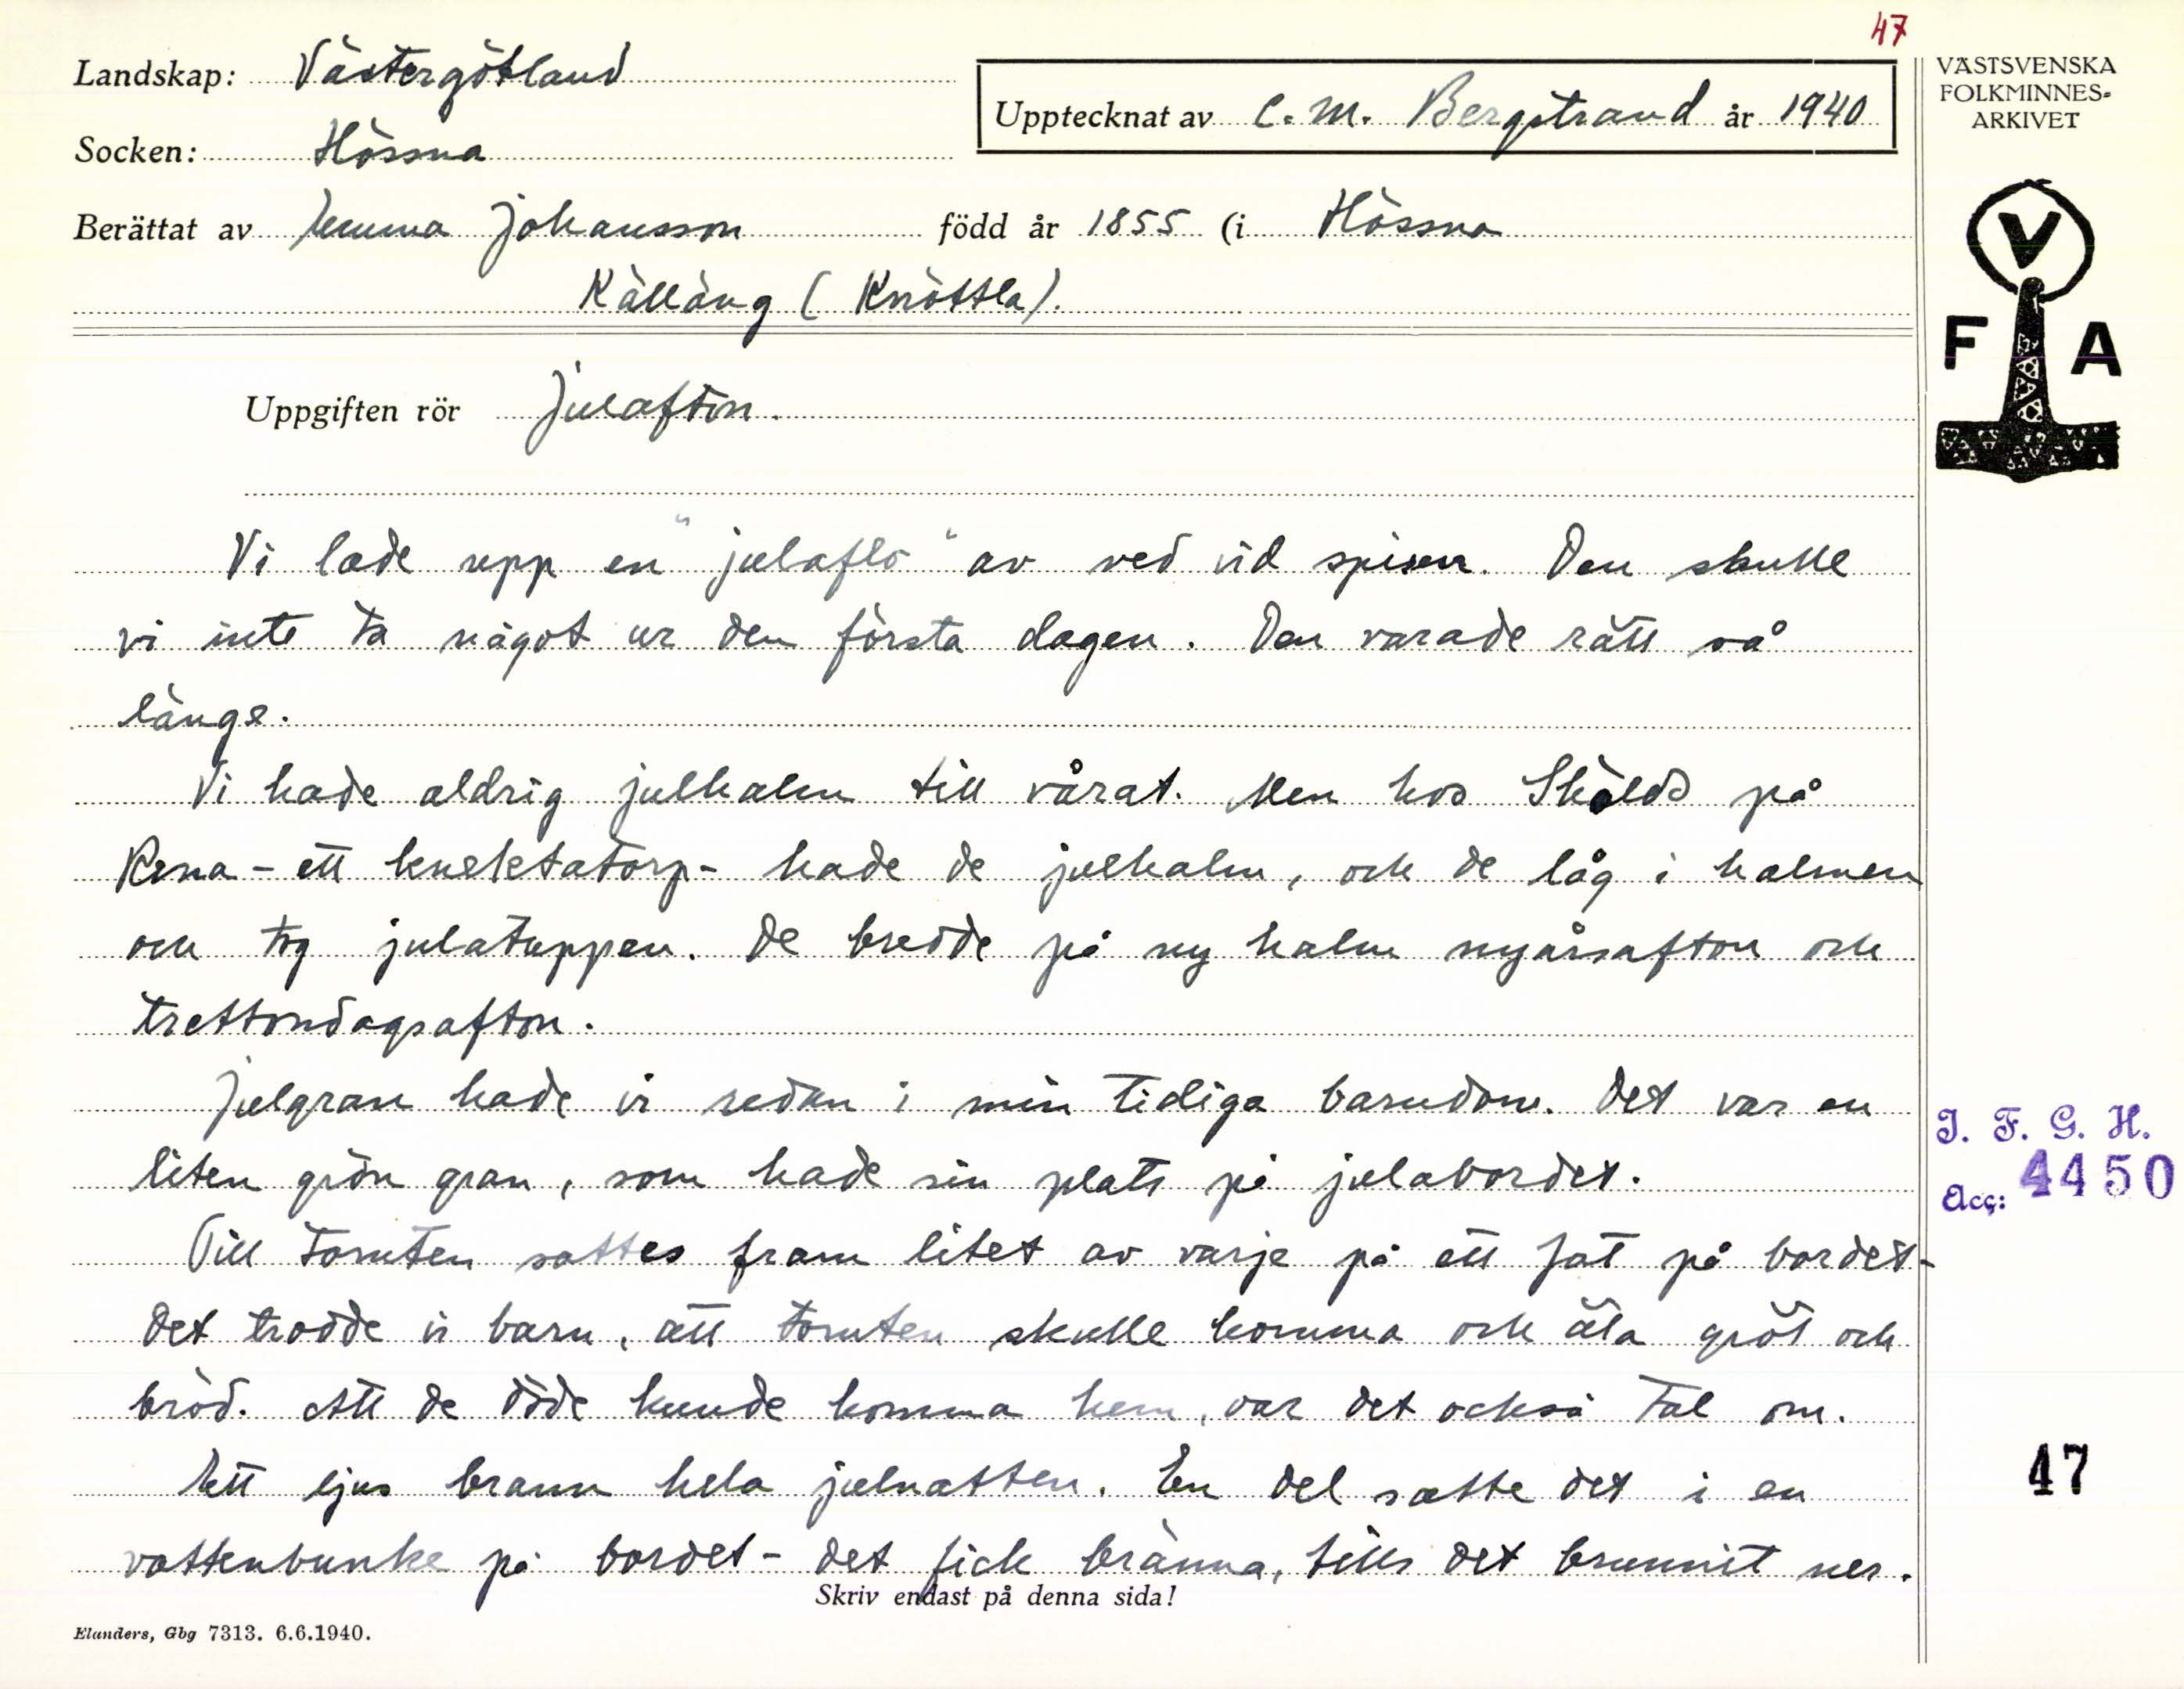 47
Landskap: Västergötland
Upptecknat av C. M. Bergstrand år 1940
VÄSTSVENSKA
FOLKMINNES-
ARKIVET
Socken: Hössna
Berättat av Emma Johansson född år 1855 (i Hössna
Källäng (Knöttla).
V
F A
Uppgiften rör Julafton.
Vi lade upp en "julaflo" av ved vid spisen. Den skulle
vi inte ta något ur den första dagen. Den varade rätt så
länge.
Vi hade aldrig julhalm till vårat. Men hos Skölds på
Rena - ett knektatorp - hade de julhalm, och de låg i halmen
och tog julatuppen. De bredde på ny halm nyårsafton och
trettondagsafton.
Julgran hade vi redan i min tidiga barndom. Det var en
liten grön gran, som hade sin plats på julabordet.
Till tomten sattes fram litet av varje på ett fat på bordet -
Det trodde vi barn, att tomten skulle komma och äta gröt och
bröd. Att de döde kunde komma hem, var det också tal om.
Ett ljus brann hela julnatten. En del satte det i en
vattenbunke på bordet - det fick bränna, tills det brunnit ner.
I. F. G. H.
Acc: 4450
47
Skriv endast på denna sida!
Elanders, Gbg 7313. 6.6.1940.